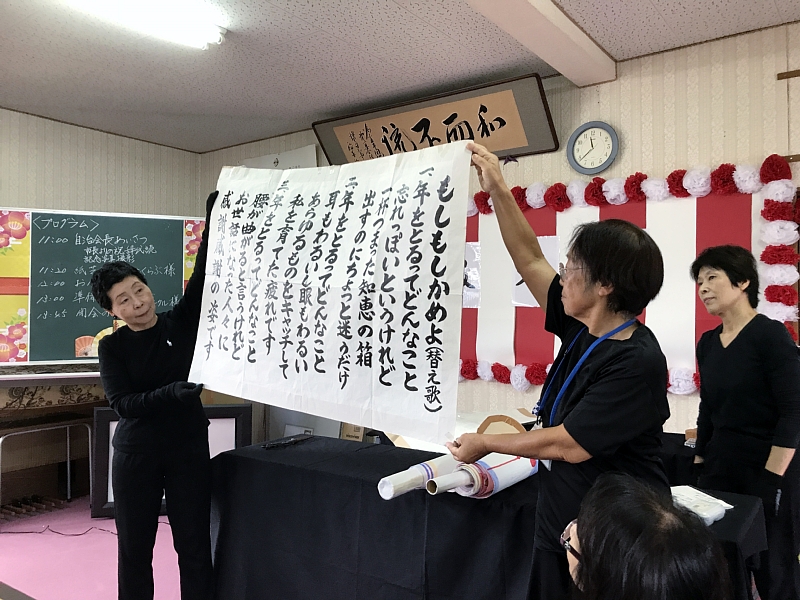 もしもしかめよ(替え歌)
一、年をとるってどんなこと
忘れっぽいというけれど
一杯つまった知恵の箱
出すのにちょっと迷うだけ
二、年をとるってどんなこと
耳もわるいと眼もわるい
あらゆるものをキャッチして
私を育てた疲れです
三、年をとるってどんなこと
腰が曲がると言うけれど
お世話になった人々に
感謝感謝の姿です
和而不流
<プログラム>
11:00 自治会長あいさつ
記念写真撮影
11:20
くらぶ様
12:00
13:00